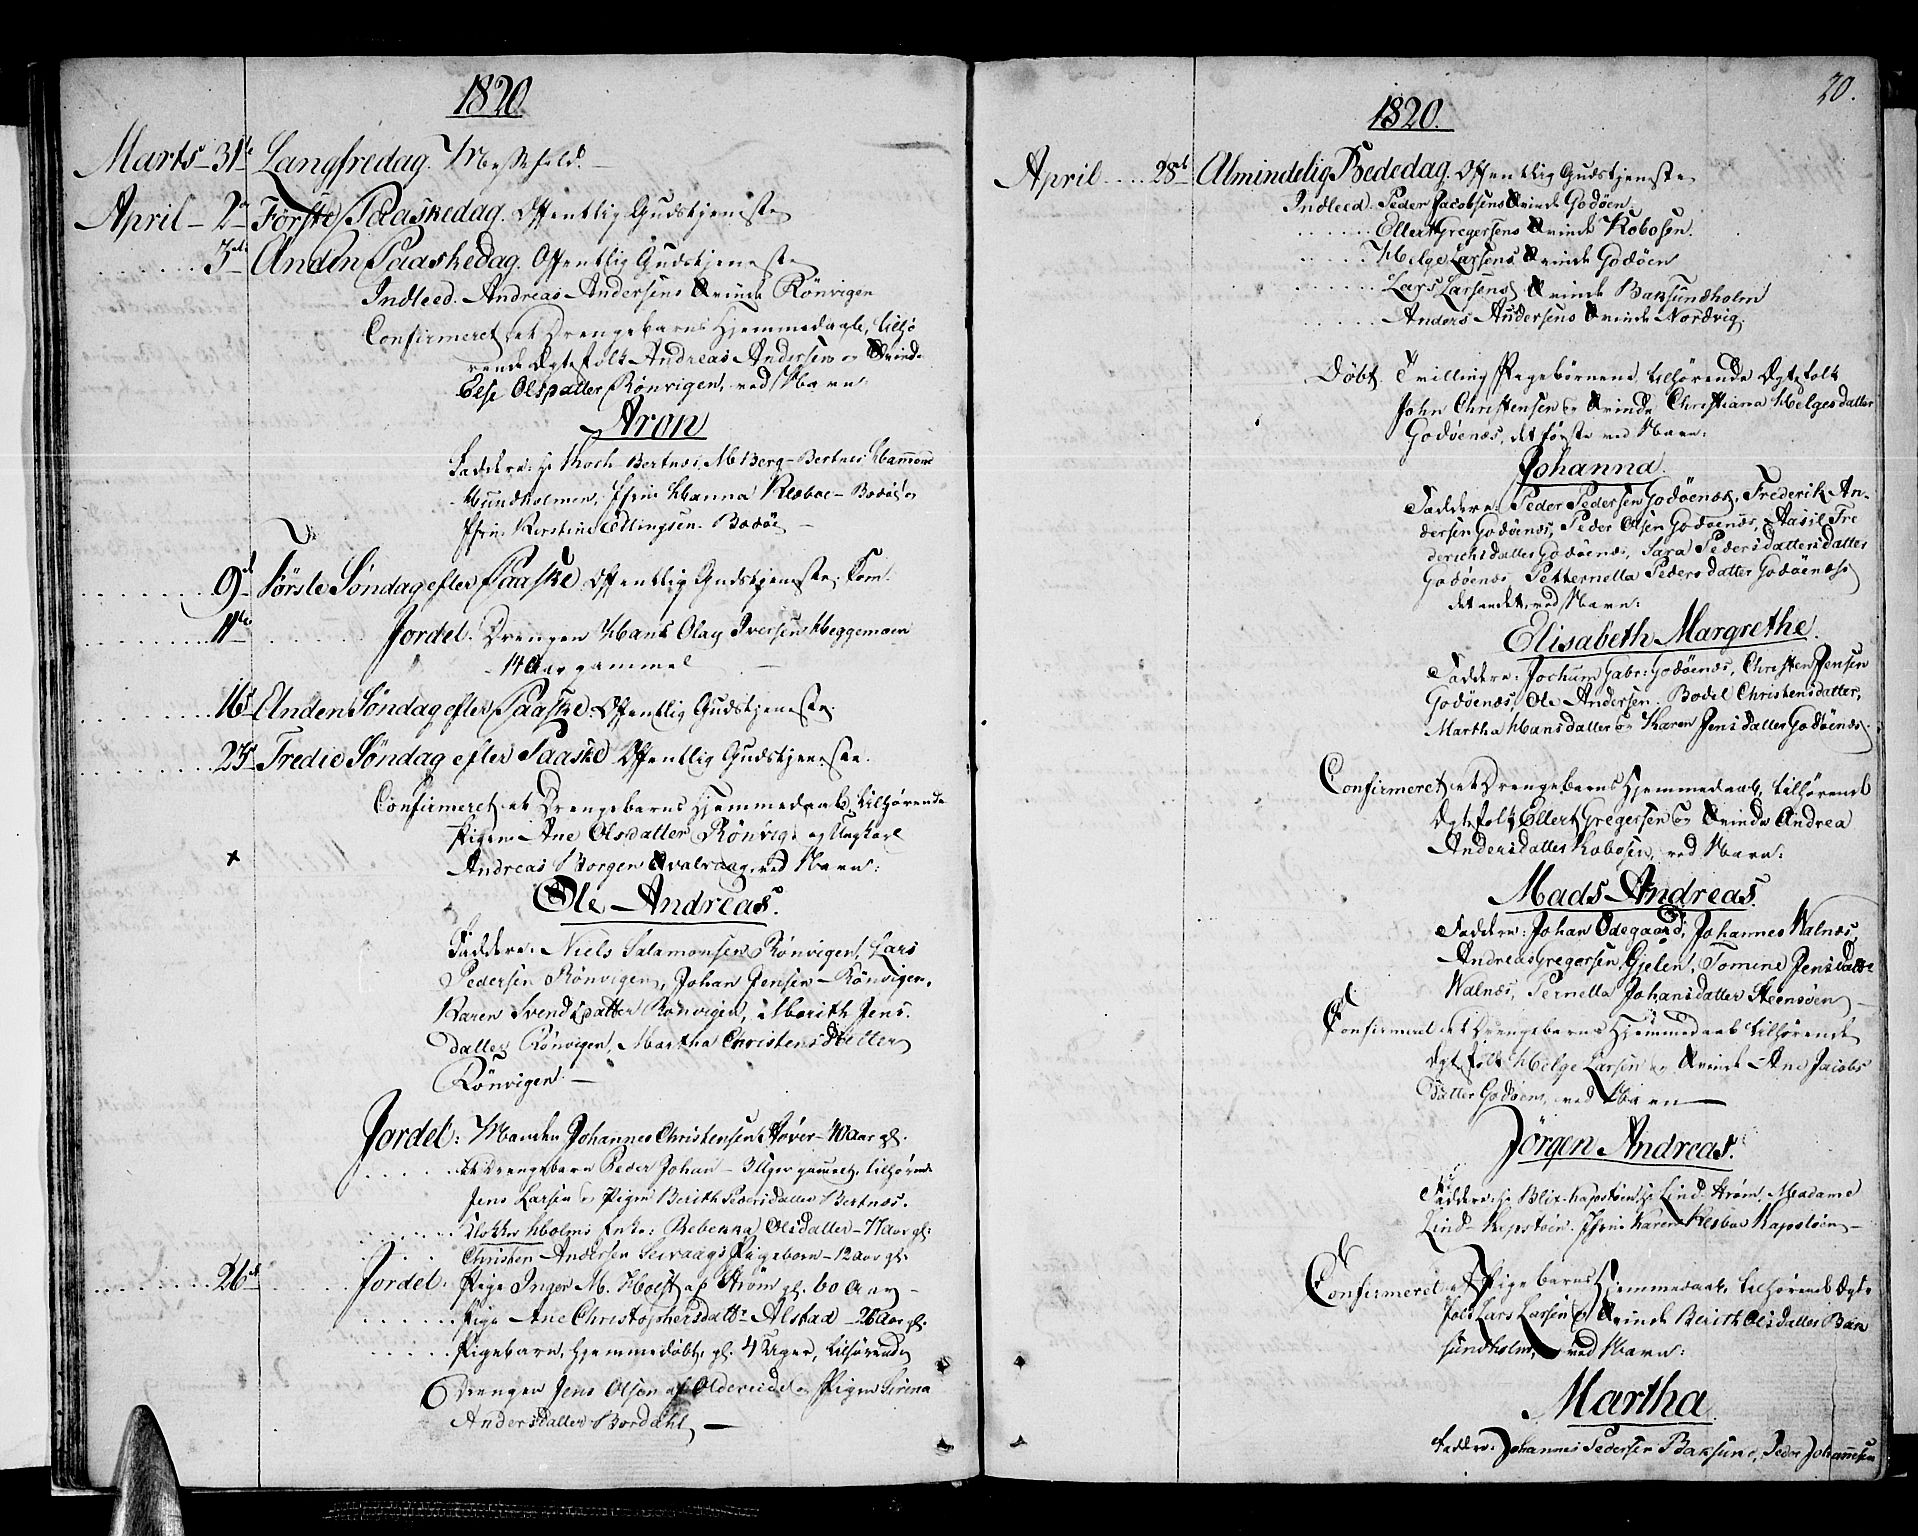 1820
Marts - 31te Langfredag. Messefald.
April - 2den Første Paaskedag. Offentlig Gudstjeneste
3die Anden Paaskedag. Offentlig Gudstjeneste
Indleed. Andreas Andersens Qvinde Rönvigen
Confirmeret et Drengebarns Hjemmedaab, tilhø
rende Ægtefolk Andreas Andersen og Qvinde
Else Olsdatter Rönvigen, ved Navn
Aron
Faddere: Hr Koch Bertnæs, M. Berg - Bertnes
Hundholmen, Jfru Hanna Klæboe - Bodöe og
Jfru Kirstine Ellingsen - Bodöe
9de Første Søndag efter Paaske Offentlig Gudstjeneste, Com.
11te Jordet. Drengen Hans Olay Iversen Heggemoen
14 Aar gammel
16de Anden Søndag efter Paaske. Offentlig Gudstjeneste.
23de Tredie Søndag efter Paaske Offentlig Gudstjeneste.
Confirmeret et Drengebarns Hjemmedaab, tilhørende
Pigen Ane Olsdatter Rönvig og Ungkarl
Andreas Borgen Qvalvaag, ved Navn:
Ole Andreas.
Faddere: Niels Salamonsen Rönvigen, Lars
Pedersen Rönvigen, Johan Jensen - Rönvigen,
Karen Svendsdatter Rönvigen, Berith Jens
datter Rönvigen, Martha Christensdatter
Rönvigen. -
Jordet: Manden Johannes Christensen Høver - 40 Aar gl.
et Drengebarn Peder Johan - 3 Uger gammel, tilhørende
Jens Larsen og Pigen Berith Pedersdatter Bertnæs.
Klokker Holms Enke: Rebekka Olsdatter - 77 Aar gl:
Christen Andersen Seivaags Pigebarn - 12 Aar gl:
26de Jordet. Pige Inger M. Holst af Ström gl. 60 Aar -
Pige Ane Christophersdattr Alstad - 26 Aar gl.
Pigebarn, hjemmedøbt, gl. 4 Uger, tilhørende
Drengen Jens Olsen af Oldereide og Pigen Sirena
Andersdatter Bordahl -
20.
1820.
April 28de Almindelig Bededag. Offentlig Gudstjeneste
Indleed. Peder Jacobsens Qvinde Godöen.
Ellert Gregersens Qvinde Kobosen.
Helge Larsens Qvinde Godöen
Lars Larsens Qvinde Baksundholm
Anders Andersens Qvinde Nordvig.
Döbt Tvilling Pigebørnene, tilhørende Ægtefolk
John Christensen og Qvinde Christiana Helgesdatter
Godöenæs, det første ved Navn:
Johanna.
Faddere: Peder Pedersen Godöenæs, Frederik An-
dersen Godöenæs, Peder Olsen Godöenæs, Aasil Fre
derichsdatter Godöenæs, Sara Pedersdatter
Godöenæs, Petternella Pedersdatter Godöenæs
det andet, ved Navn:
Elisabeth Margrethe.
Faddere: Jochum Gabr: Godöenæs, Christen Jensen
Godöenæs, Ole Andersen. Bodel Christensdatter,
Martha Hansdatter og Karen Jensdatter Godöenæs.
Confirmeret et Drengebarns Hjemmedaab, tilhørende
Ægtefolk Ellert Gregersen og Qvinde Andrea
Andersdatter Kobosen, ved Navn:
Mads Andreas.
Faddere: Johan Odegaard, Johannes Walnæs,
Andreas Gregersen Gjelen, Tomine Jensdatter
Walnæs, Pernella Johansdatter Steensöen
Confirmeret et Drengebarns Hjemmedaab tilhørende
Ægtefolk Helge Larsen og Qvinde Ane Jacobs
datter Godöen, ved Navn
Jörgen Andreas.
Faddere: Hr Blix-Kapstöen, Hr Lind - Ström, Madame
Lind - Kapstöen, Jfru Karen Klæboe Kapstöen -
Confirmeret et Pigebarns Hjemmedaab, tilhørende Ægte
folk Lars Larsen og Qvinde Berith Olsdatter Bak
sundholm, ved Navn:
Martha.
Faddere: Johannes Pedersen Baksund, Peder Johannesen